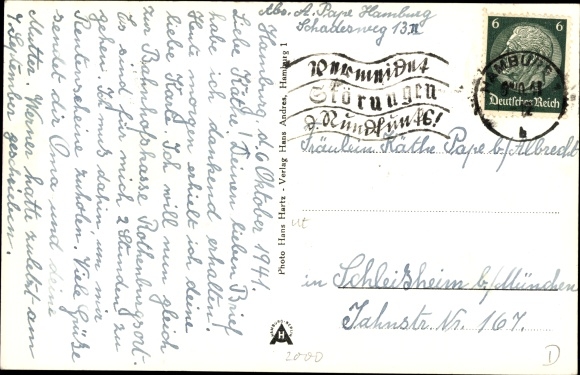 Abs. A. Pape Hamburg
Schadesweg 13 II
Hamburg, d. 6 Oktober 1941.
Liebe Käthe! Deinen lieben Brief
habe ich dankend erhalten.
Heute morgen erhielt ich deine
liebe Karte. Ich will nun gleich
zur Bahnhofskasse Rothenburgsort
Es sind für mich 2 Stunden zu
gehen bis dahin, um mir
Rente zuholen. Viele Grüße
sendet dir Oma und deine
Mutter. Werner hatte zuletzt am
7 September geschrieben.
Photo Hans Hartz - Verlag Hans Andres, Hamburg 1
Vermeidet
Störungen
d. Rundfunks!
HAMBURG
1
h
6 6
Deutsches Reich
Fräulein Käthe Pape b/Albrecht
in Schleißheim b/München
Jahnstr. Nr. 167.
HAMBURG-BERLIN
H
2000
D